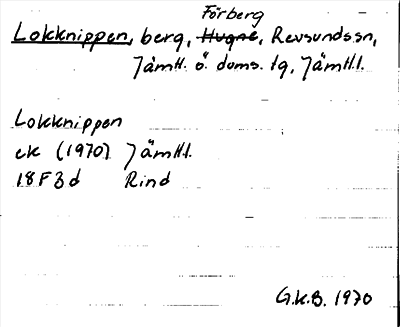 Förberg
Lokknippen, berg, Hugne, Revsunds sn,
Jämtl. ö. doms. tg, Jämtl.l.
Lokknippen
ek (1970) Jämtl.l.
18F3d Rind
G.K.B. 1970